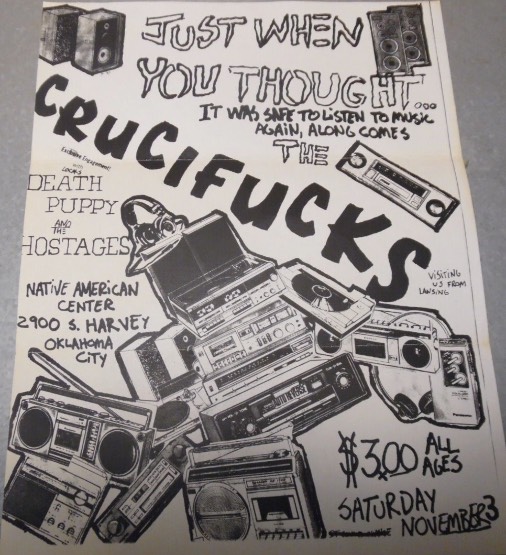 JUST WHEN
YOU THOUGHT...
IT WAS SAFE TO LISTEN TO MUSIC
AGAIN, ALONG COMES
THE
CRUCIFUCKS
Exclusive Engagement!
with
LOCALS
DEATH
PUPPY
AND
THE
HOSTAGES
VISITING
US FROM
LANSING
NATIVE AMERICAN
CENTER
2900 S. HARVEY
OKLAHOMA
CITY
Panasonic
$3.00 ALL
AGES
SATURDAY
NOVEMBER 3